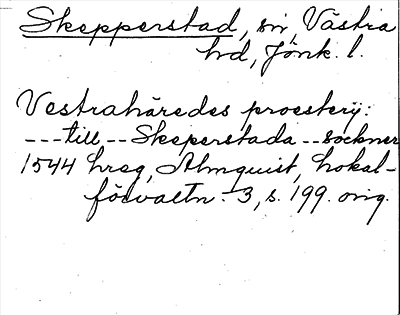 Skepperstad, sn, Västra
hd, Jönk. l.
Vestrahäredes proesterij:
---till--Skeperstada--sockner
1544 hreg, Almquist, Lokal-
förvaltn. 3, s. 199. orig.